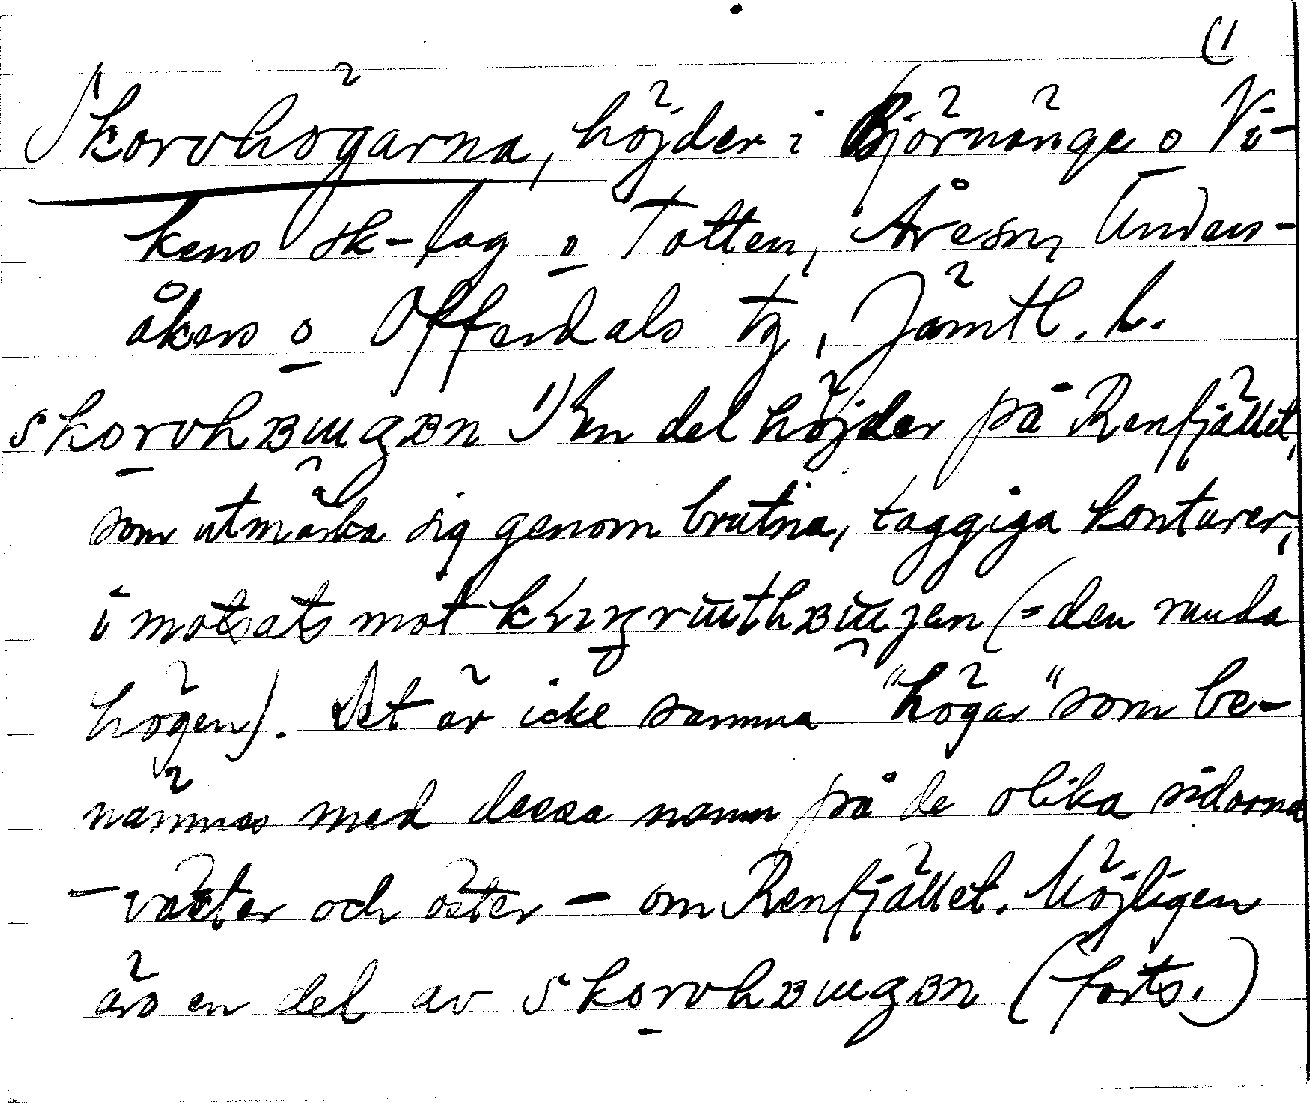 (1
Skorvhögarna, höjder i Björnänge o Vi-
kens sk-lag o Totten, Åre sn, Unders-
åkers o Offerdals tg, Jämtl. l.
1) En del höjder på Renfjället,
som utmärka sig genom brutna, taggiga konturer,
i motsats mot (= den runda
högen). Det är icke samma "högar" som be-
nämnas med dessa namn på de olika sidorna
– väster och öster – om Renfjället. Möjligen
äro en del av (forts.)